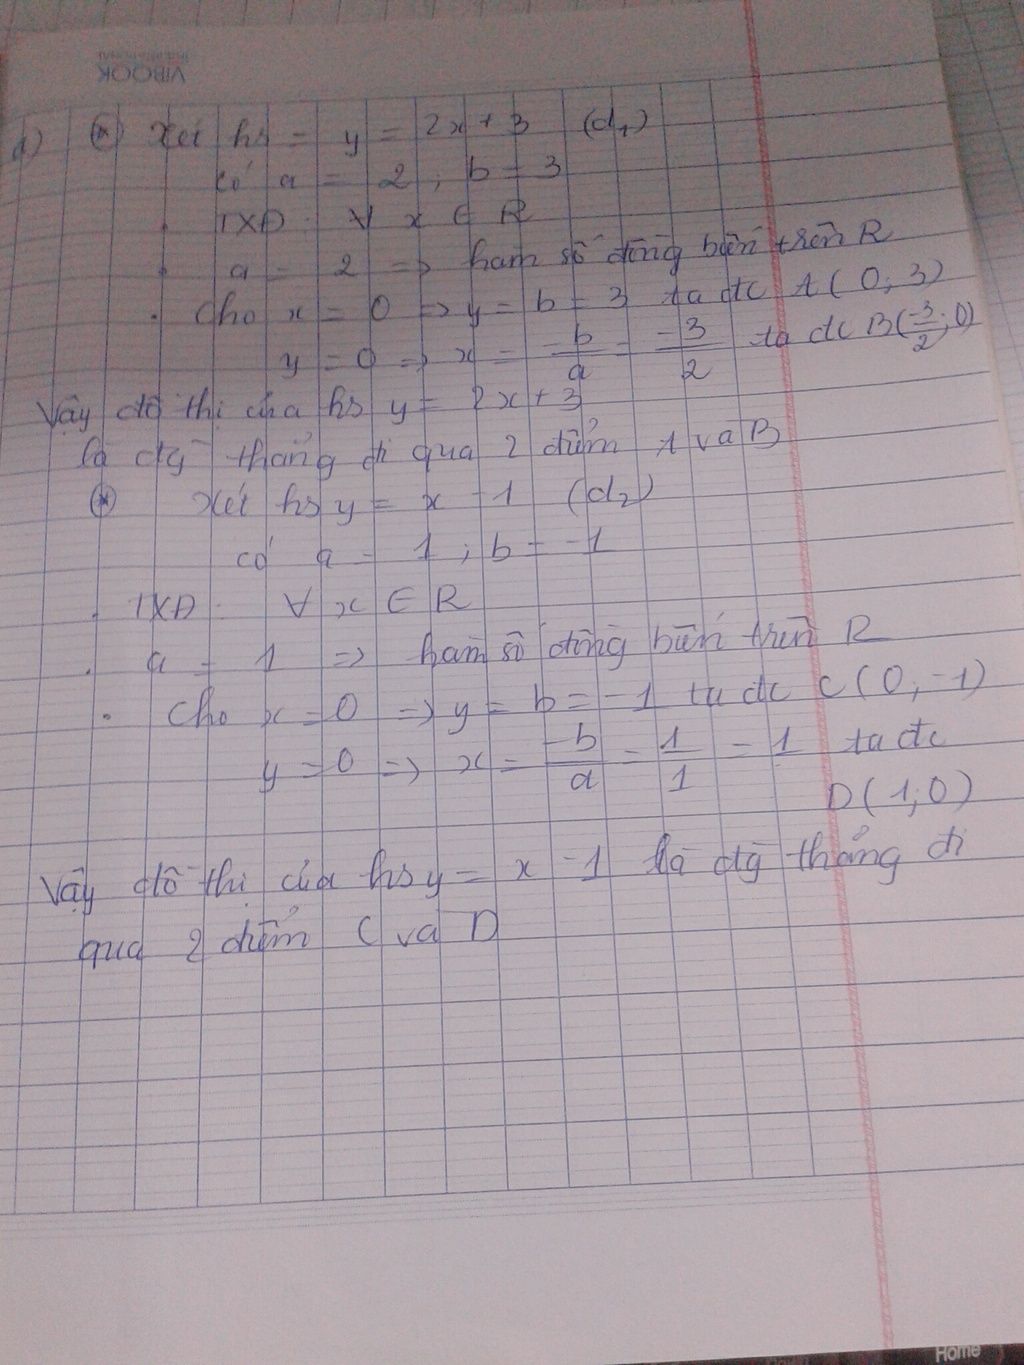 VIBOOK
a) (*) Xét hs = y = 2x + 3 (d₁)
có a = 2 ; b = 3
. TXD: ∀ x ∈ R
. a = 2 => hàm số đồng biến trên R
. Cho x = 0 => y = b = 3 ta đc A(0; 3)
y = 0 => x = -b/a = -3/2 ta đc B(-3/2; 0)
Vậy đồ thị của hs y = 2x + 3
là đg thẳng đi qua 2 điểm A và B
(*) Xét hs y = x - 1 (d₂)
có a = 1 ; b = -1
. TXD: ∀ x ∈ R
. a = 1 => hàm số đồng biến trên R
. Cho x = 0 => y = b = -1 ta đc C(0; -1)
y = 0 => x = -b/a = 1/1 = 1 ta đc
D(1; 0)
Vậy đồ thị của hs y = x - 1 là đg thẳng đi
qua 2 điểm C và D
Home